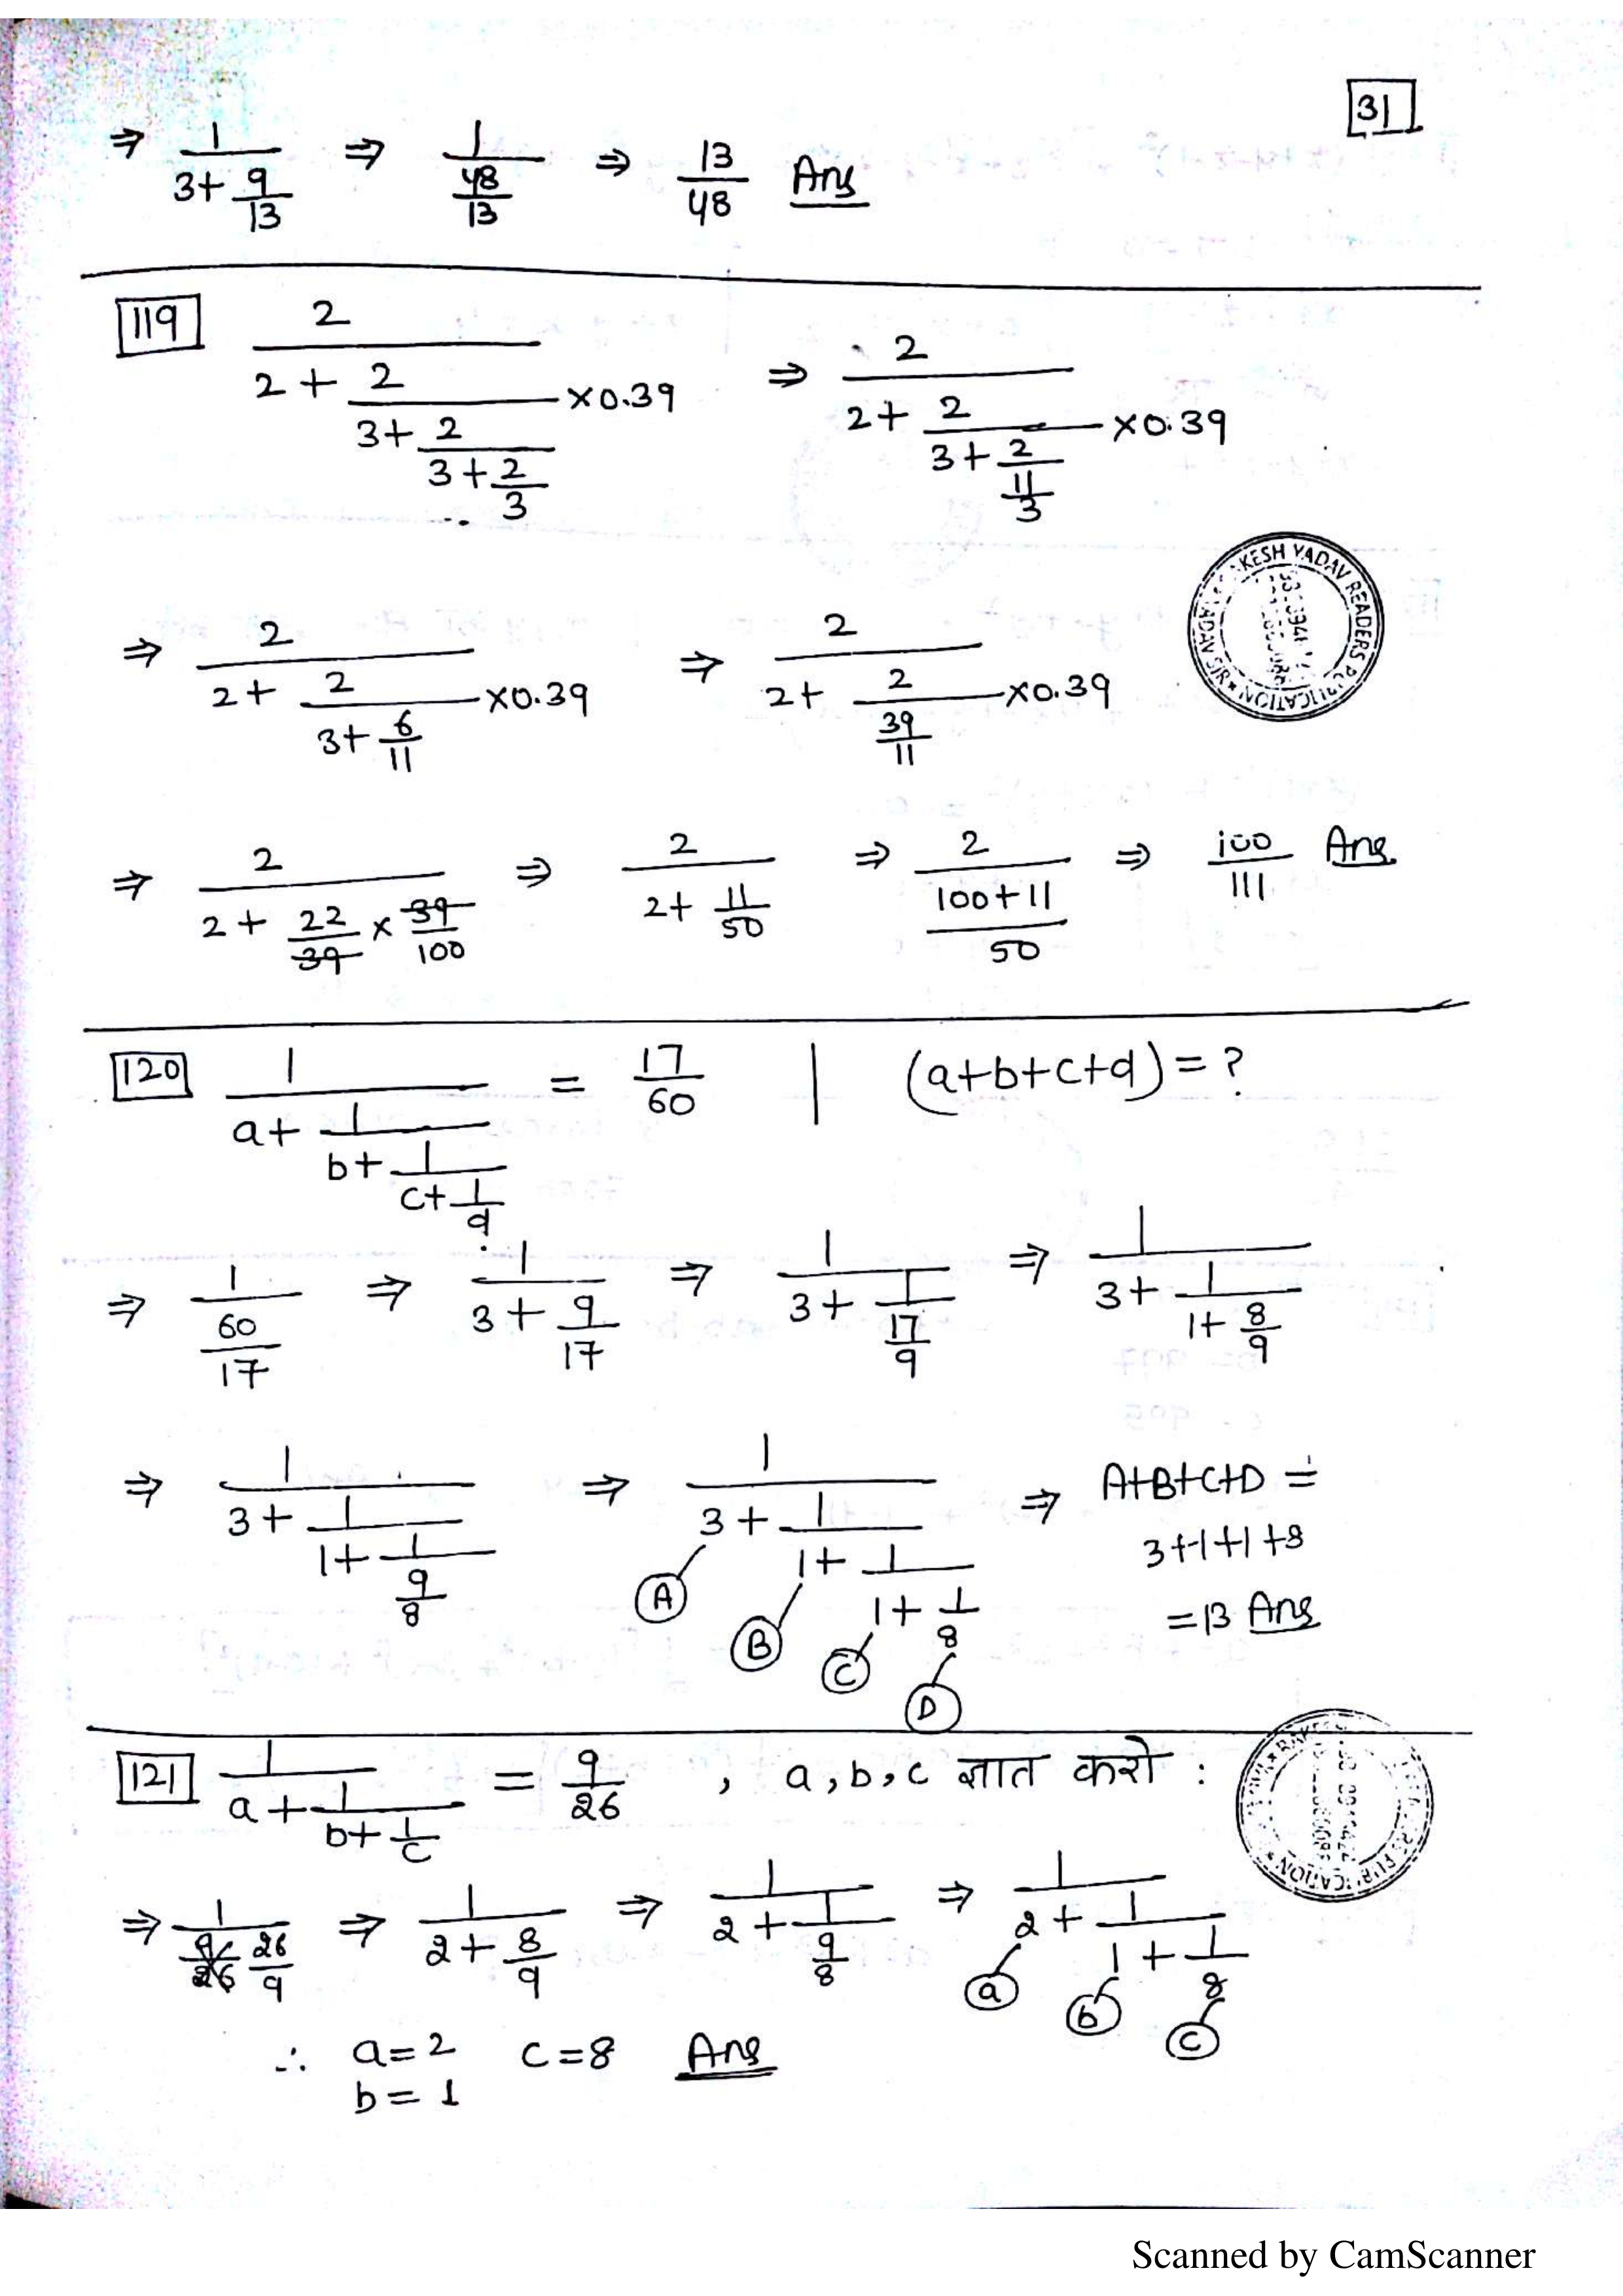 31
⇒ 1/(3+9/13) ⇒ 1/(48/13) ⇒ 13/48 Ans
119 2/(2+2/(3+2/(3+2/3))×0.39) ⇒ 2/(2+2/(3+2/(11/3))×0.39)
⇒ 2/(2+2/(3+6/11)×0.39) ⇒ 2/(2+2/(39/11)×0.39)
KESH YADAV READERS PUBLICATION ★ YADAV SIR
⇒ 2/(2+22/39×39/100) ⇒ 2/(2+11/50) ⇒ 2/((100+11)/50) ⇒ 100/111 Ans
120 1/(a+1/(b+1/(c+1/d))) = 17/60 | (a+b+c+d)=?
⇒ 1/(60/17) ⇒ 1/(3+9/17) ⇒ 1/(3+1/(17/9)) ⇒ 1/(3+1/(1+8/9))
⇒ 1/(3+1/(1+1/(9/8))) ⇒ 1/(3+1/(1+1/(1+1/8))) ⇒ A+B+C+D =
3+1+1+8
=13 Ans
A B C D
121 1/(a+1/(b+1/c)) = 9/26 , a,b,c ज्ञात करो :
⇒ 1/(26/9) ⇒ 1/(2+8/9) ⇒ 1/(2+1/(9/8)) ⇒ 1/(2+1/(1+1/8))
a b c
∴ a=2 c=8 Ans
b=1
Scanned by CamScanner